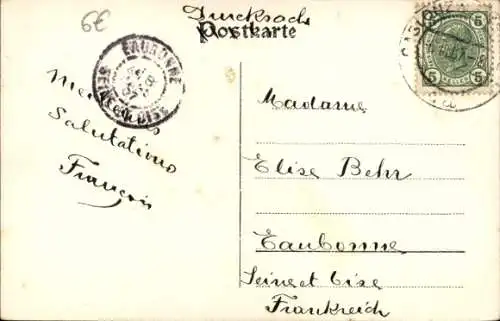 6€
Drucksache
Postkarte
EAUBONNE
SEINE-ET-OISE
5 HELLER 5
Meilleures
Salutations
François
Madame
Elise Behr
Eaubonne
Seine et Oise
Frankreich